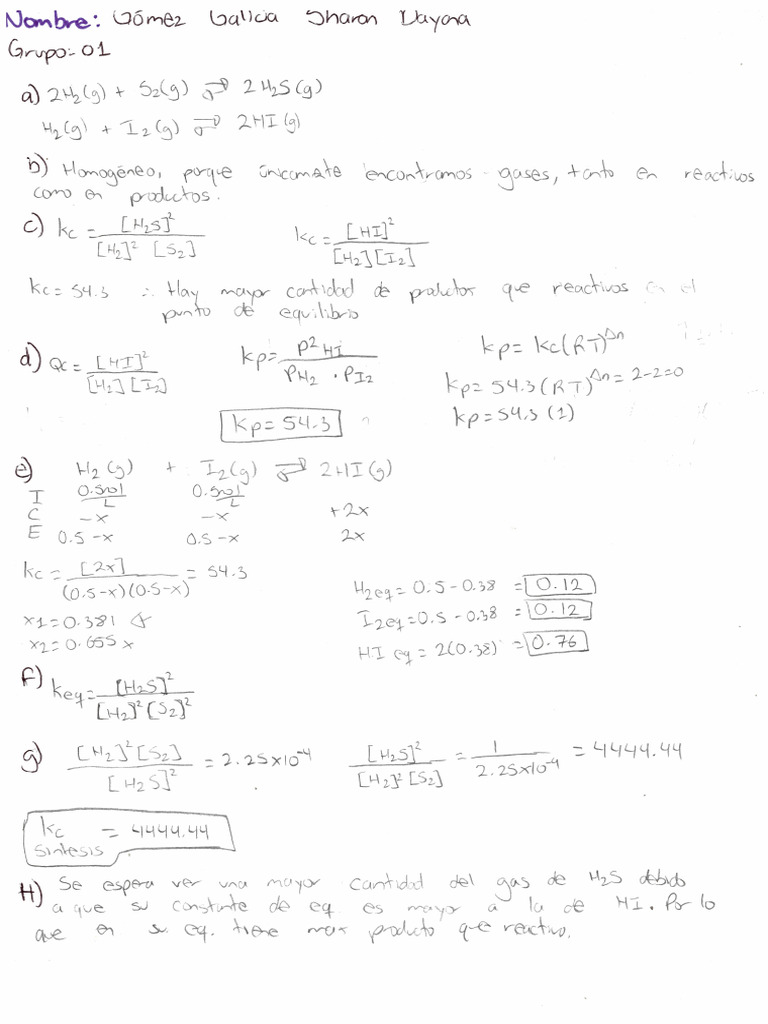 Nombre: Gómez Galicia Sharon Dayana
Grupo: 01
a) 2H₂(g) + S₂(g) ⇌ 2H₂S(g)
H₂(g) + I₂(g) ⇌ 2HI(g)
b) Homogéneo, porque únicamate encontramos gases, tanto en reactivos
como en productos.
c) Kc = [H₂S]² / [H₂]² [S₂]    Kc = [HI]² / [H₂][I₂]
Kc = 54.3 ∴ Hay mayor cantidad de productos que reactivos en el
punto de equilibrio
d) Qc = [HI]² / [H₂][I₂]    Kp = P²HI / PH₂ · PI₂    Kp = Kc(RT)^Δn
Kp = 54.3(RT)^Δn = 2-2=0
Kp = 54.3    Kp = 54.3 (1)
e) H₂(g) + I₂(g) ⇌ 2HI(g)
I 0.5mol/L 0.5mol/L
C -x -x +2x
E 0.5-x 0.5-x 2x
Kc = [2x] / (0.5-x)(0.5-x) = 54.3
H₂eq = 0.5 - 0.38 = 0.12
x1 = 0.381 I₂eq = 0.5 - 0.38 = 0.12
x2 = 0.655 x HI eq = 2(0.38) = 0.76
f) Keq = [H₂S]² / [H₂]² [S₂]²
g) [H₂]² [S₂] / [H₂S]² = 2.25x10⁻⁴    [H₂S]² / [H₂]² [S₂] = 1 / 2.25x10⁻⁴ = 4444.44
Kc síntesis = 4444.44
H) Se espera ver una mayor cantidad del gas de H₂S debido
a que su constante de eq. es mayor a la de HI. Por lo
que en su eq. tiene mas producto que reactivo.